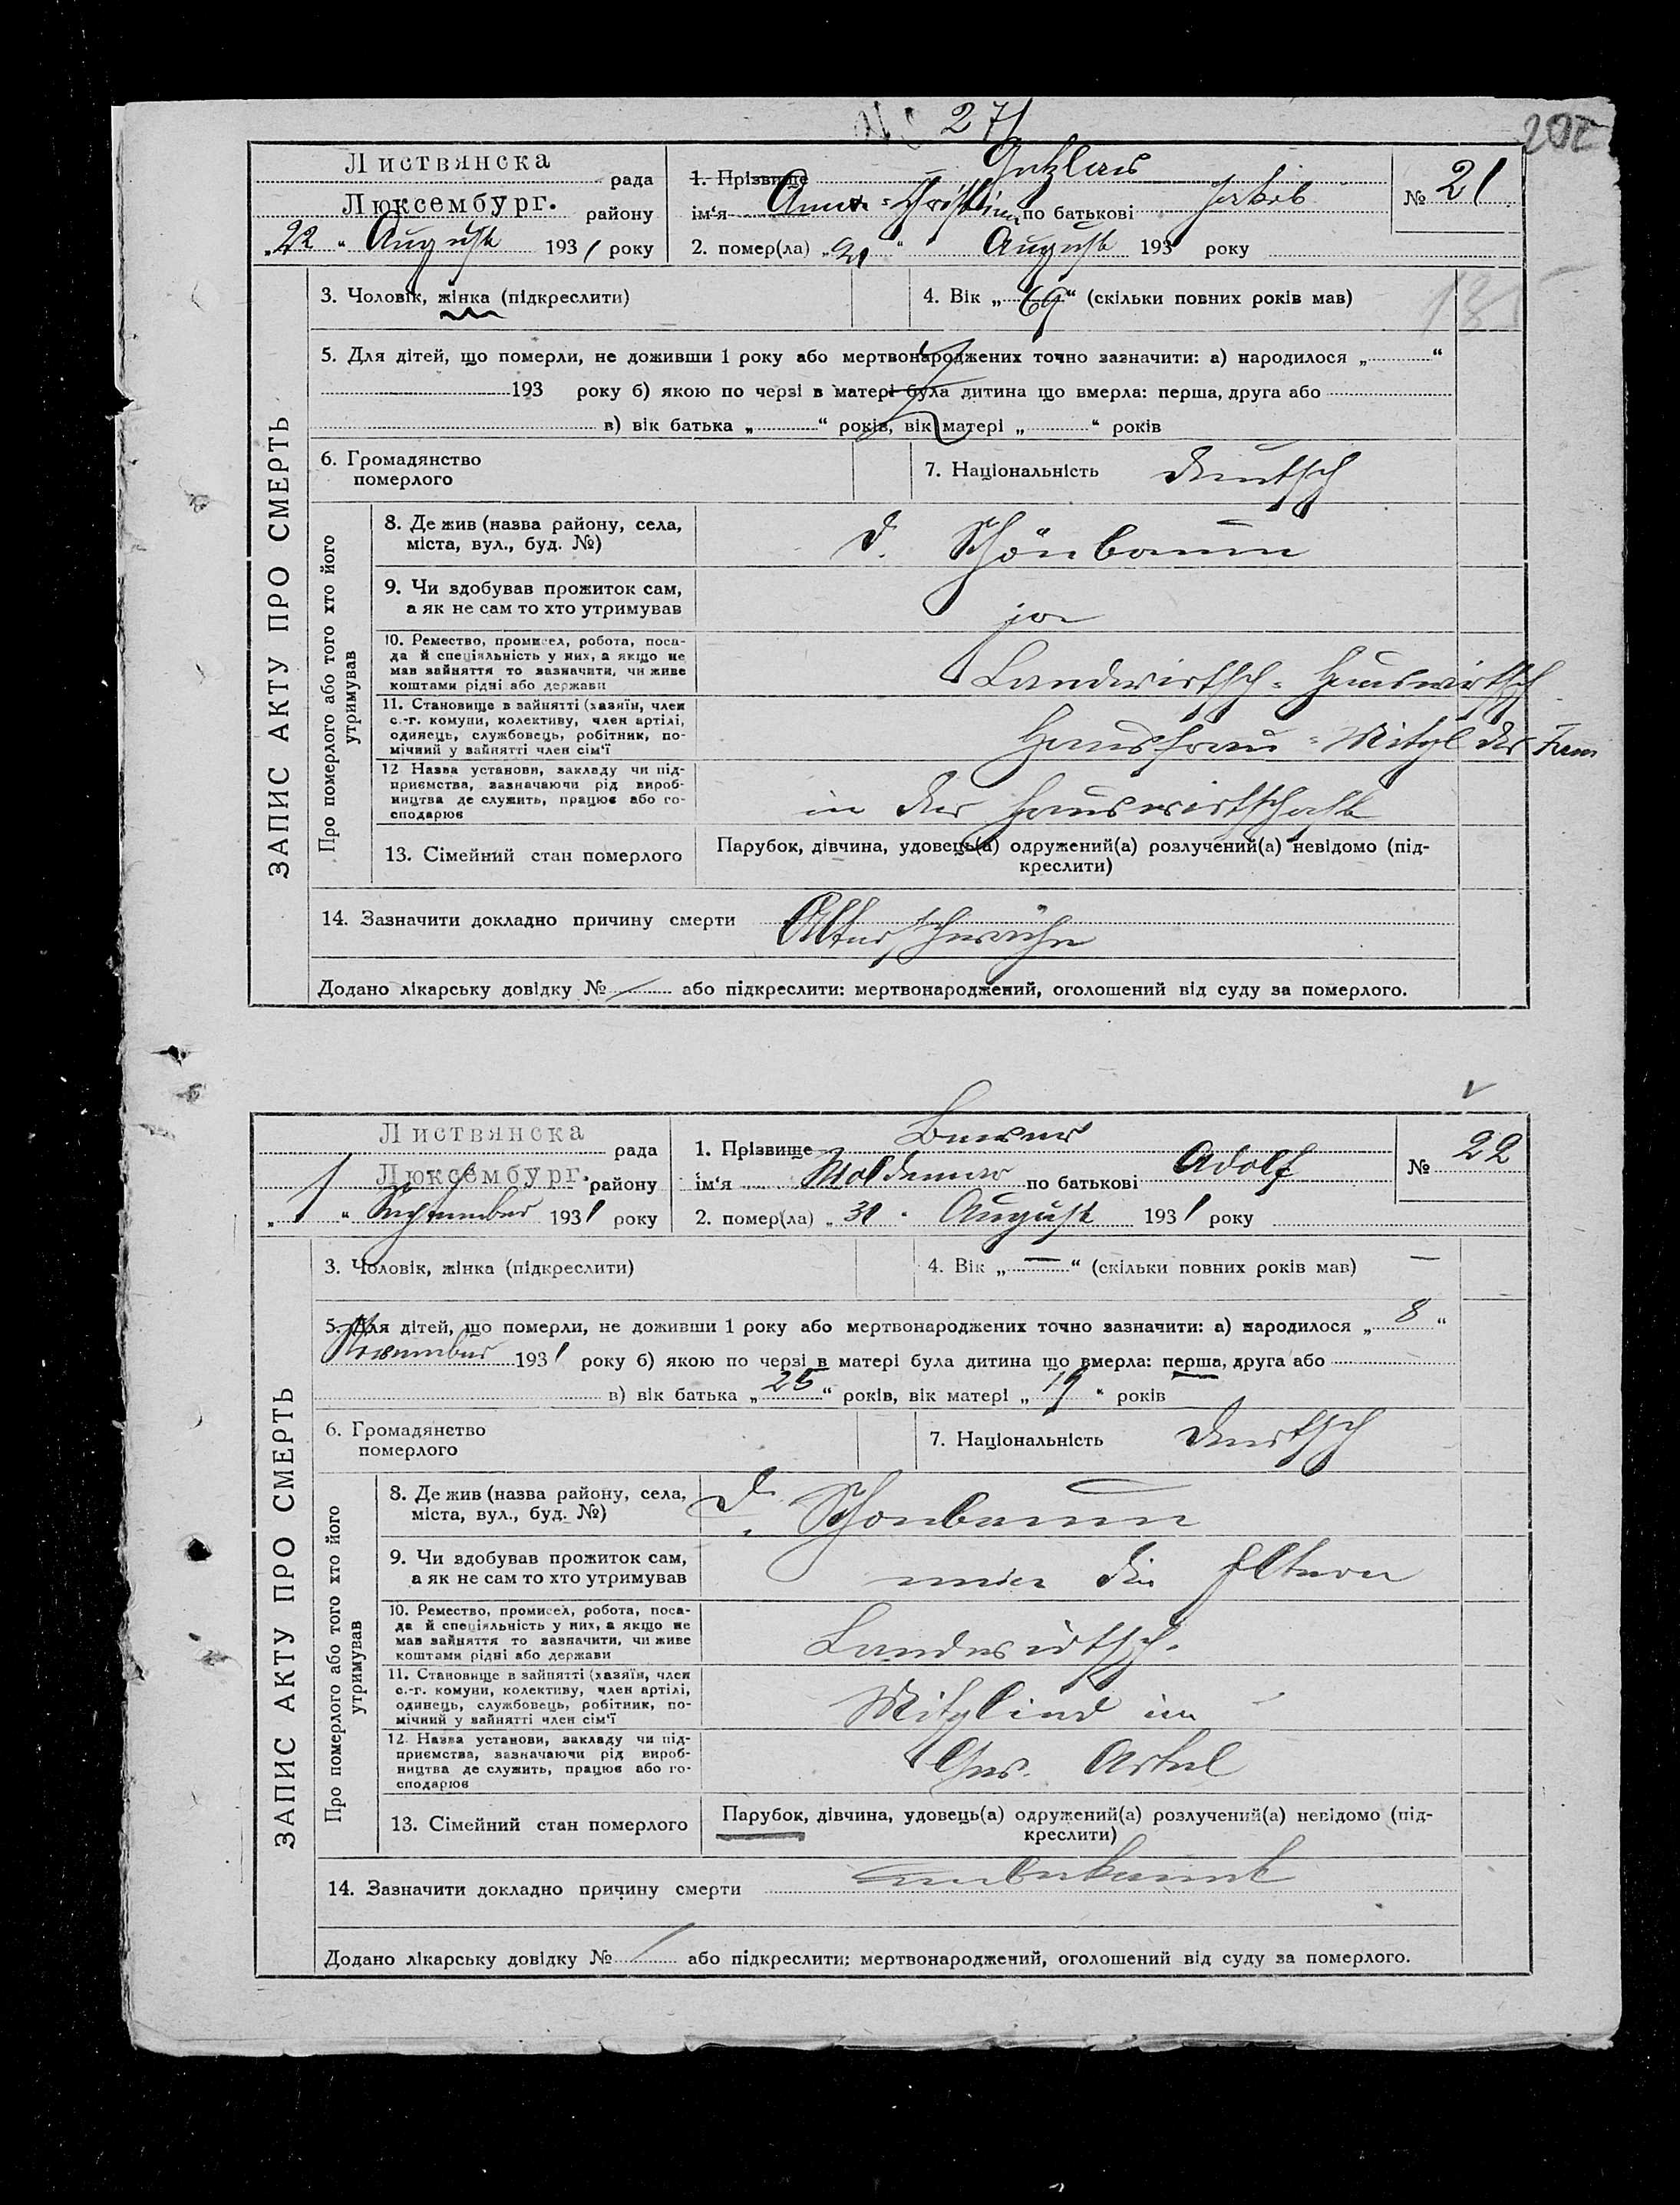 271
202
Листвянска рада
Люксембург. району
„22“ August 1931 року
1. Прізвище
ім‘я Anna-Christine по батькові Jakob
2. помер(ла) „21“ August 193 року
№ 21
ЗАПИС АКТУ ПРО СМЕРТЬ
3. Чоловік, жінка (підкреслити)
4. Вік „69“ (скільки повних років мав)
5. Для дітей, що померли, не доживши 1 року або мертвонароджених точно зазначити: а) народилося „ “
193 року б) якою по черзі в матері була дитина що вмерла: перша, друга або
в) вік батька „ “ років, вік матері „ “ років
6. Громадянство
померлого
7. Національність deutsch
Про померлого або того хто його
утримував
8. Де жив (назва району, села,
міста, вул., буд. №)
d. Schönbaum
9. Чи здобував прожиток сам,
а як не сам то хто утримував
ja
10. Ремество, промисел, робота, поса-
да й спеціяльність у них, а якщо не
мав зайняття то зазначити, чи живе
коштами рідні або держави
Landwirtsch. Hauswirtsch
11. Становище в зайнятті (хазяїн, член
с.-г. комуни, колективу, член артілі,
одинець, службовець, робітник, по-
мічний у зайнятті член сім‘ї
Hausfrau-Mitgl der Fam
12 Назва установи, закладу чи під-
приємства, зазначаючи рід вироб-
ництва де служить, працює або го-
сподарює
in der Hauswirtschaft
13. Сімейний стан померлого
Парубок, дівчина, удовець(а) одружений(а) розлучений(а) невідомо (під-
креслити)
14. Зазначити докладно причину смерти Altersschwäche
Додано лікарську довідку № або підкреслити: мертвонароджений, оголошений від суду за померлого.
Листвянска рада
Люксембург. району
„1“ September 1931 року
1. Прізвище
ім‘я Woldemar по батькові Adolf
2. помер(ла) „31“ August 1931 року
№ 22
ЗАПИС АКТУ ПРО СМЕРТЬ
3. Чоловік, жінка (підкреслити)
4. Вік „—“ (скільки повних років мав) —
5. Для дітей, що померли, не доживши 1 року або мертвонароджених точно зазначити: а) народилося „8“
November 193 року б) якою по черзі в матері була дитина що вмерла: перша, друга або
в) вік батька „25“ років, вік матері „19“ років
6. Громадянство
померлого
7. Національність deutsch
Про померлого або того хто його
утримував
8. Де жив (назва району, села,
міста, вул., буд. №)
d. Schönbaum
9. Чи здобував прожиток сам,
а як не сам то хто утримував
die Eltern
10. Ремество, промисел, робота, поса-
да й спеціяльність у них, а якщо не
мав зайняття то зазначити, чи живе
коштами рідні або держави
Landwirtsch.
11. Становище в зайнятті (хазяїн, член
с.-г. комуни, колективу, член артілі,
одинець, службовець, робітник, по-
мічний у зайнятті член сім‘ї
Mitglied im
12. Назва установи, закладу чи під-
приємства, зазначаючи рід вироб-
ництва де служить, працює або го-
сподарює
Artel
13. Сімейний стан померлого
Парубок, дівчина, удовець(а) одружений(а) розлучений(а) невідомо (під-
креслити)
14. Зазначити докладно причину смерти unbekannt
Додано лікарську довідку № або підкреслити: мертвонароджений, оголошений від суду за померлого.